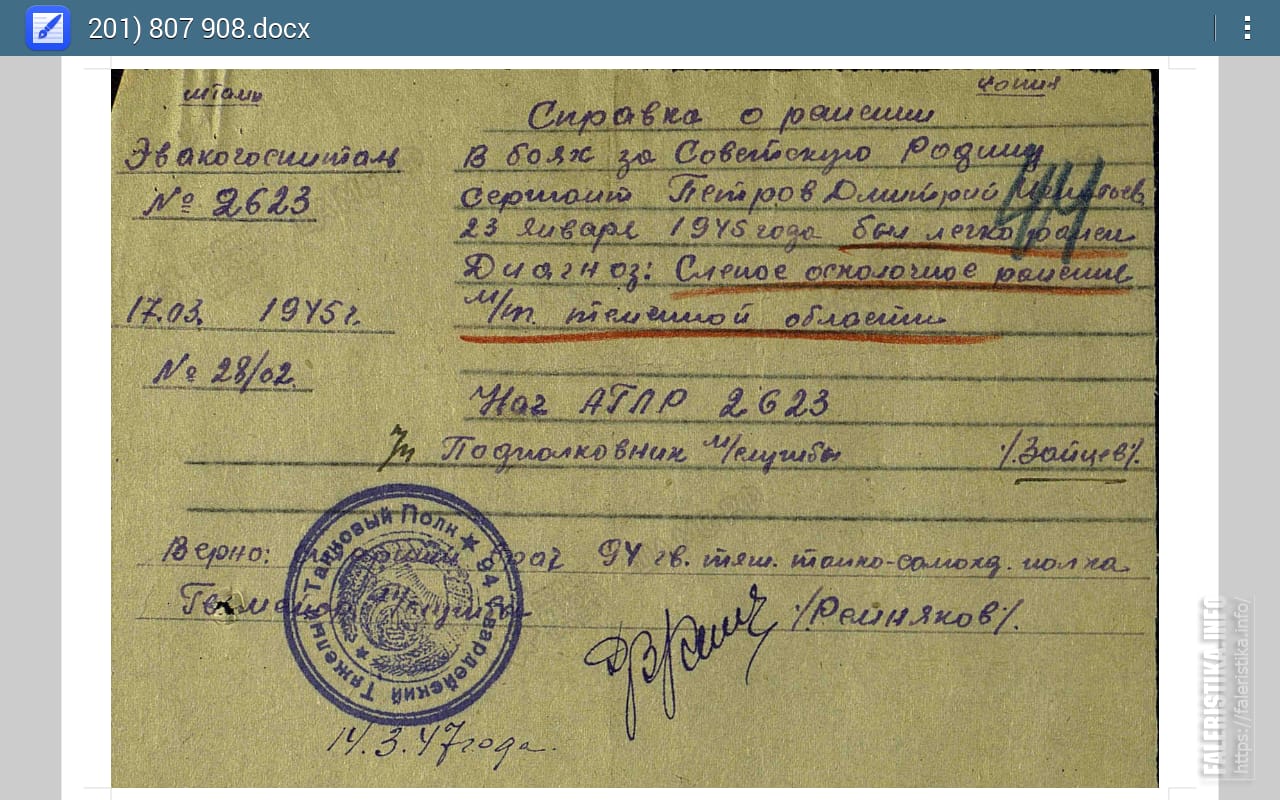 201) 807 908.docx
штамп
копия
Справка о ранении
Эвакогоспиталь
В боях за Советскую Родину
№ 2623
сержант Петров Дмитрий
23 января 1945 года был легко ранен
Диагноз: Слепое осколочное ранение
17.03. 1945 г.
м/т. теменной области
№ 28/02.
Нач АГЛР 2623
п/п Подполковник м/службы /.Зайцев/.
Верно: Старший врач 94 гв. тяж. танко-самохд. полка
Гв. майор м/службы /Ремняков/.
94 Гвардейский Тяжелый Танковый Полк
14.3.47 года.
FALERISTIKA.INFO
https://faleristika.info/